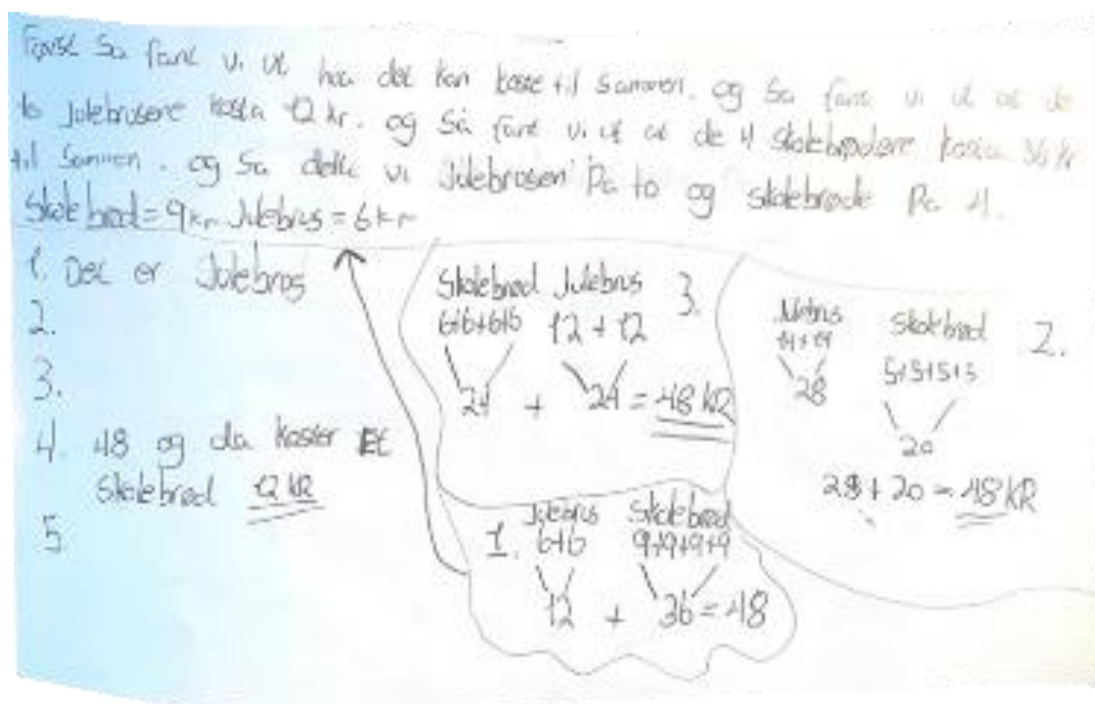 Først så fant vi ut hva det kan koste til sammen. og så fant vi ut at de
to Julebrusene kosta 12 kr. og så fant vi ut at de 4 skolebrødene kosta 36 kr
til sammen. og så delte vi Julebrusen på to og skolebrøde på 4.
Skolebrød = 9 kr Julebrus = 6 kr
1. Det er Julebrus
2.
3.
4. 48 og da koster Et
Skolebrød 12 KR
5
Skolebrød Julebrus 3.
6+6+6+6 12 + 12
24 + 24 = 48 KR
Julebrus Skolebrød 2.
14+14 5+5+5+5
28
20
28 + 20 = 48 KR
Julebrus Skolebrød
1. 6+6 9+9+9+9
12 + 36 = 48